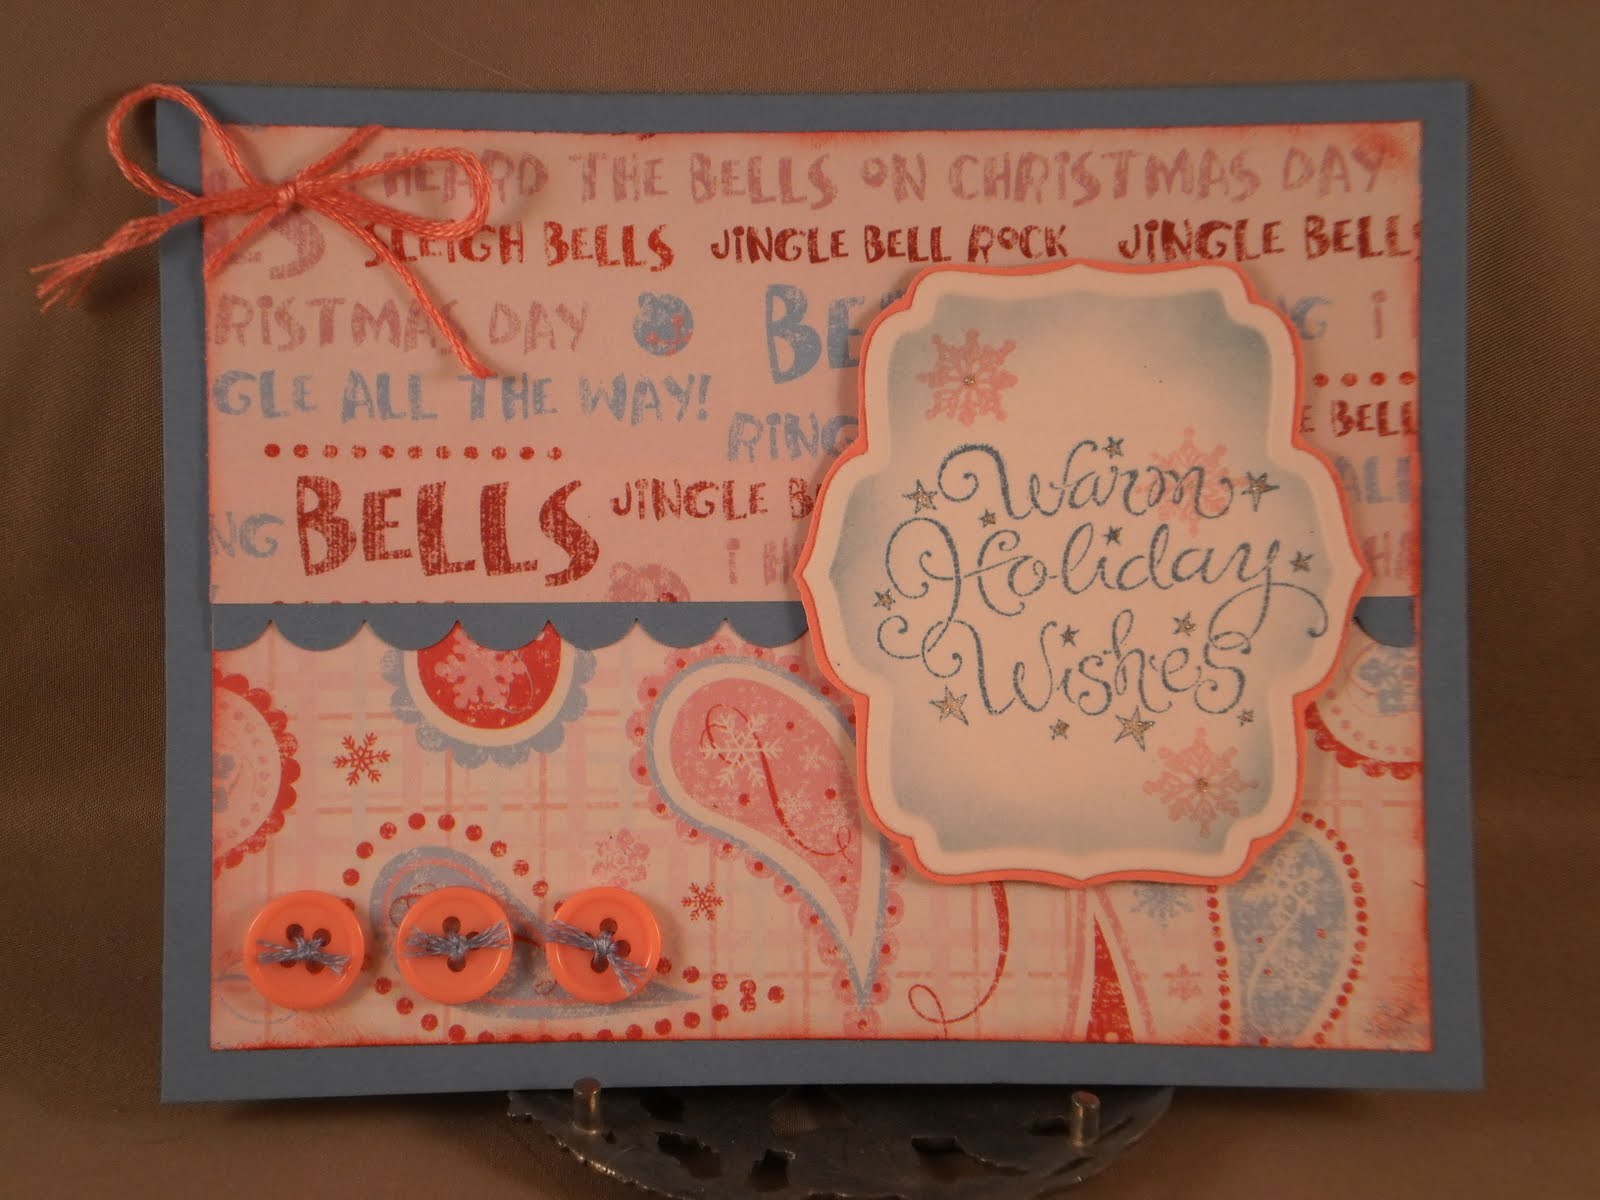 I HEARD THE BELLS ON CHRISTMAS DAY
ES SLEIGH BELLS JINGLE BELL ROCK JINGLE BELLS
RISTMAS DAY BE NG I
GLE ALL THE WAY!
RING E BELL
BELLS JINGLE B ALL
NG I H HA
Warm
Holiday
Wishes